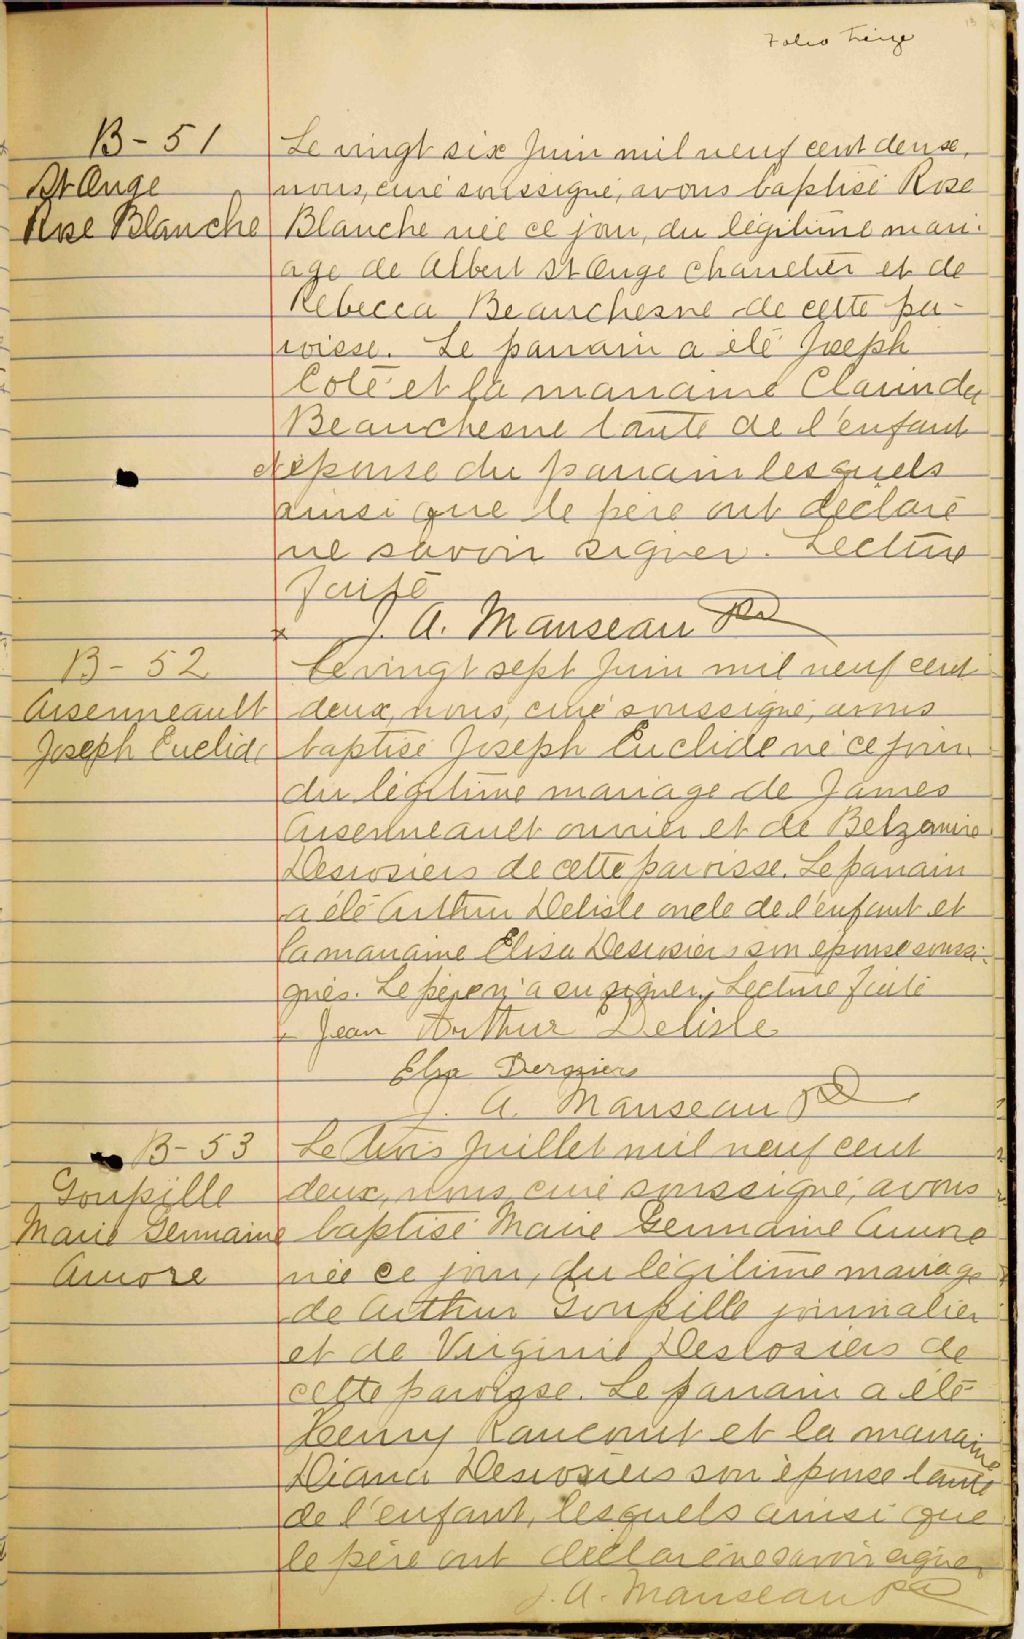 Folio treize
13
B - 51
St Ange
Rose Blanche
Le vingt six Juin mil neuf cent deux,
nous, curé soussigné, avons baptisé Rose
Blanche née ce jour, du légitime mari-
age de Albert St Ange charretier et de
Rebecca Beauchesne de cette pa-
roisse. Le parrain a été Joseph
Coté et la marraine Clarinda
Beauchesne tante de l'enfant
et épouse du parrain lesquels
ainsi que le père ont déclaré
ne savoir signer. Lecture
faite
x J. A. Manseau ptre
B - 52
Arsenneault
Joseph Euclide
Le vingt sept Juin mil neuf cent
deux, nous, curé soussigné, avons
baptisé Joseph Euclide né ce jour
du légitime mariage de James
Arsenneault ouvrier et de Belzemire
Desrosiers de cette paroisse. Le parrain
a été Arthur Delisle oncle de l'enfant et
la marraine Elisa Desrosiers son épouse soussi-
gnés. Le père n'a su signer. Lecture faite
Jean Arthur Delisle
Elsa Derosiers
J. A. Manseau ptre
B - 53
Goupille
Marie Germaine
Aurore
Le trois Juillet mil neuf cent
deux, nous, curé soussigné, avons
baptisé Marie Germaine Aurore
née ce jour, du légitime mariage
de Arthur Goupille journalier
et de Virginie Desrosiers de
cette paroisse. Le parrain a été
Henry Rancourt et la marraine
Diana Desrosiers son épouse tante
de l'enfant, lesquels ainsi que
le père ont déclaré ne savoir signer.
J. A. Manseau ptre